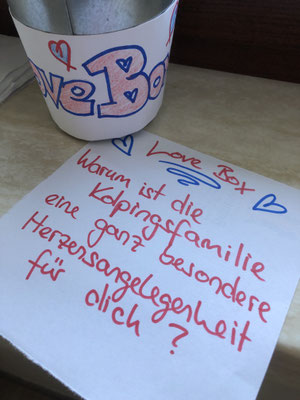 Love Box
Love Box
Warum ist die
Kolpingsfamilie
eine ganz besondere
Herzensangelegenheit
für dich?